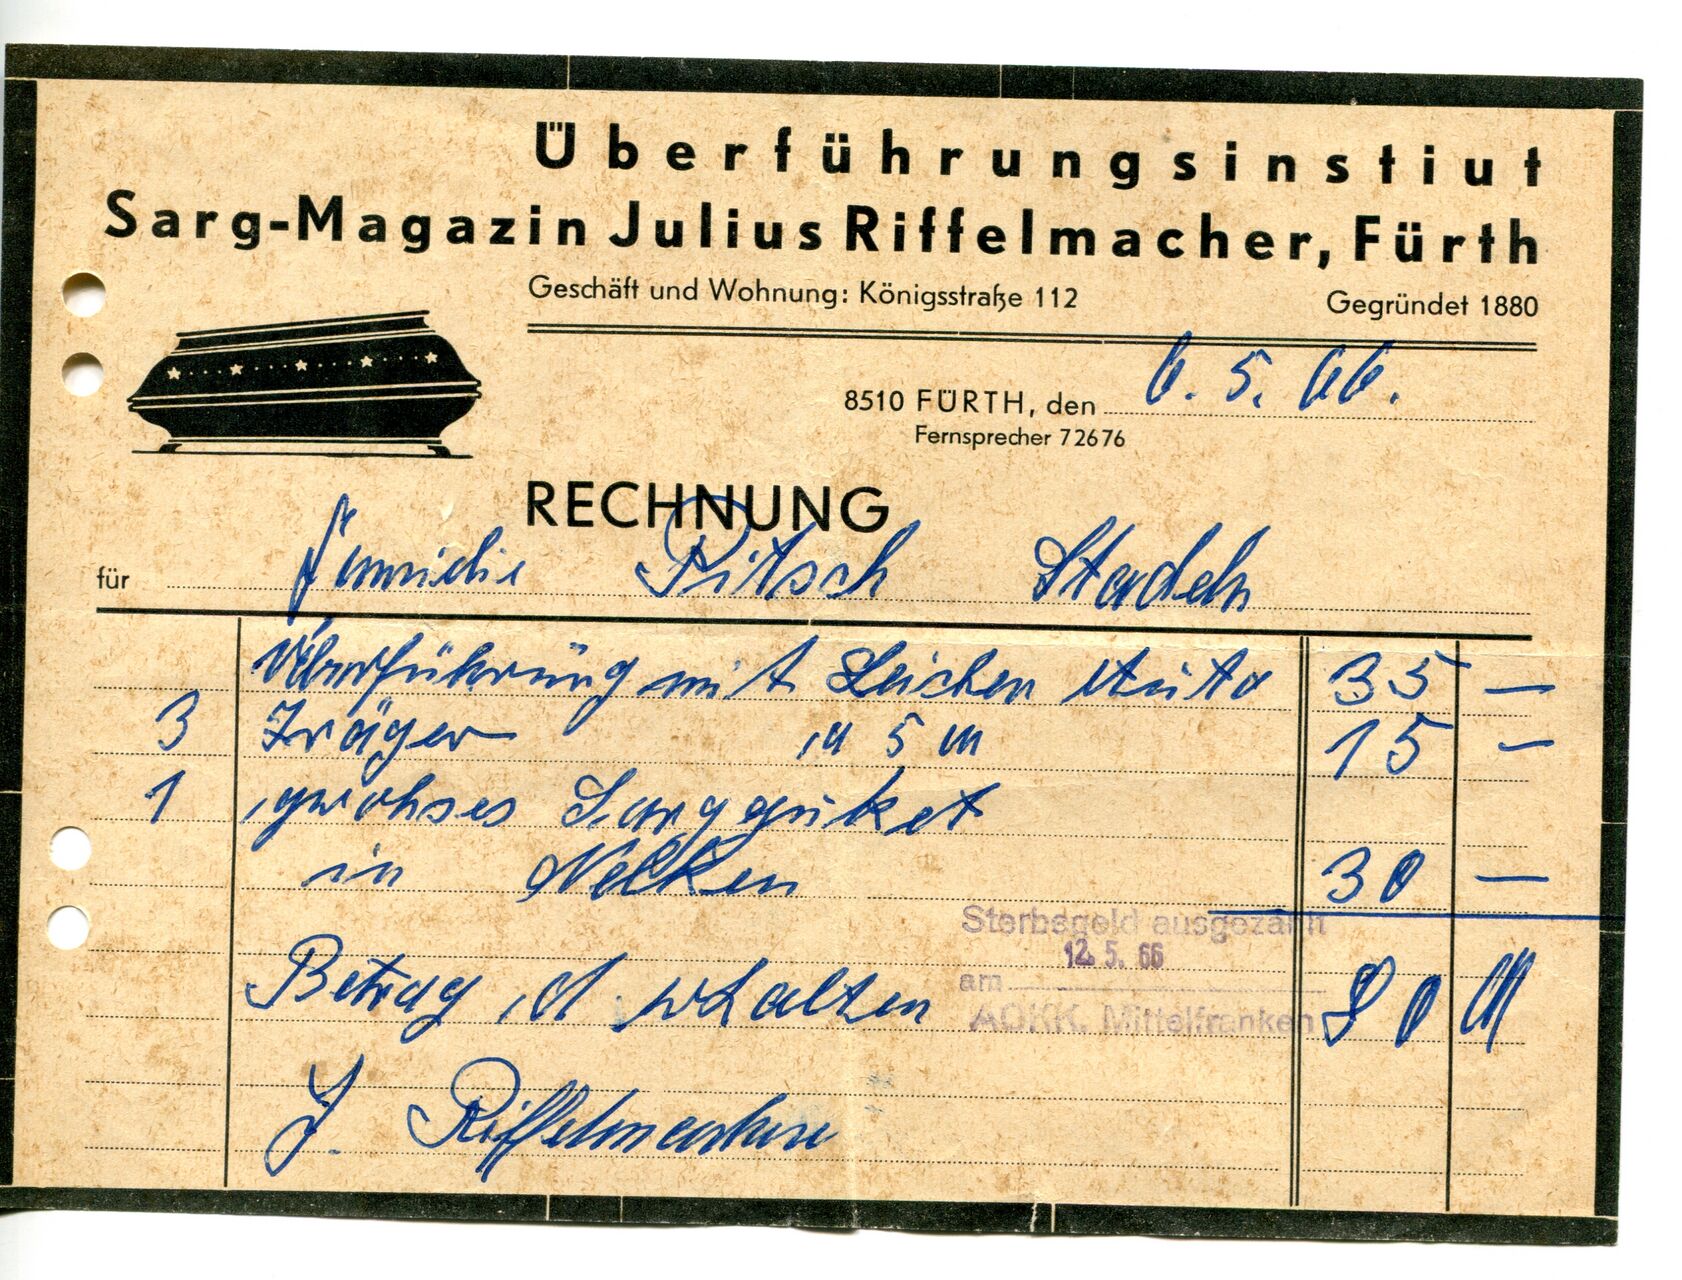 Überführungsinstiut
Sarg-Magazin Julius Riffelmacher, Fürth
Geschäft und Wohnung: Königsstraße 112
Gegründet 1880
8510 FÜRTH, den 6. 5. 66.
Fernsprecher 72676
RECHNUNG
für Familie Pitsch Stadeln
Überführung mit Leichen Auto 35 —
3 Träger a 5 M 15 —
1 großes Sargbuket
in Nelken 30 —
Sterbegeld ausgezahlt
12. 5. 66
am
AOKK. Mittelfranken
Betrag erhalten 80 M
J. Riffelmacher